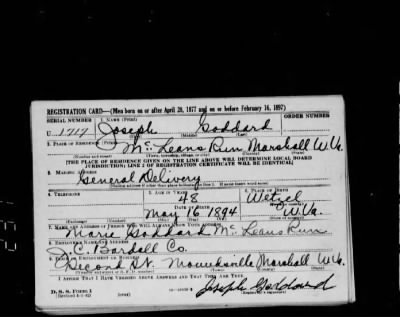 REGISTRATION CARD—(Men born on or after April 28, 1877 and on or before February 16, 1897)
SERIAL NUMBER 1. NAME (Print) ORDER NUMBER
U 1717 Joseph Goddard
(First) (Middle) (Last)
2. PLACE OF RESIDENCE (Print)
McLeans Run Marshall W.Va.
(Number and street) (Town, township, village, or city) (County) (State)
[THE PLACE OF RESIDENCE GIVEN ON THE LINE ABOVE WILL DETERMINE LOCAL BOARD
JURISDICTION; LINE 2 OF REGISTRATION CERTIFICATE WILL BE IDENTICAL]
3. MAILING ADDRESS
General Delivery
4. TELEPHONE 5. AGE IN YEARS 6. PLACE OF BIRTH
48 Wetzel
DATE OF BIRTH
May 16 1894 W.Va.
(Exchange) (Number) (Mo.) (Day) (Yr.) (State or country)
7. NAME AND ADDRESS OF PERSON WHO WILL ALWAYS KNOW YOUR ADDRESS
Marie Goddard McLeans Run
8. EMPLOYER'S NAME AND ADDRESS
J.C. Bardall Co.
9. PLACE OF EMPLOYMENT OR BUSINESS
Second St. Moundsville Marshall W.Va.
(Number and street or R. F. D. number) (Town) (County) (State)
I AFFIRM THAT I HAVE VERIFIED ABOVE ANSWERS AND THAT THEY ARE TRUE.
D. S. S. Form 1
Joseph Goddard